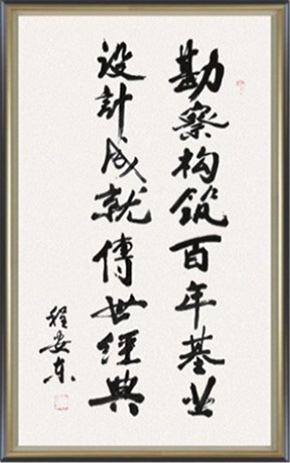 勘察构筑百年基业
设計成就傳世經典
程安东